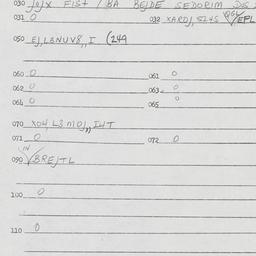 030 JOJX FIST / BA BEJDE SEDORIM DS
031 0 032 XARDJ, S24S VEPL
050 EJ, L8NUV8, I (249
060 0 061 0
062 0 063 0
064 0 065 0
070 XO4, L3 MOJ,, I4T
071 0 072 0
IN
090 VBREJTL
100 0
110 0